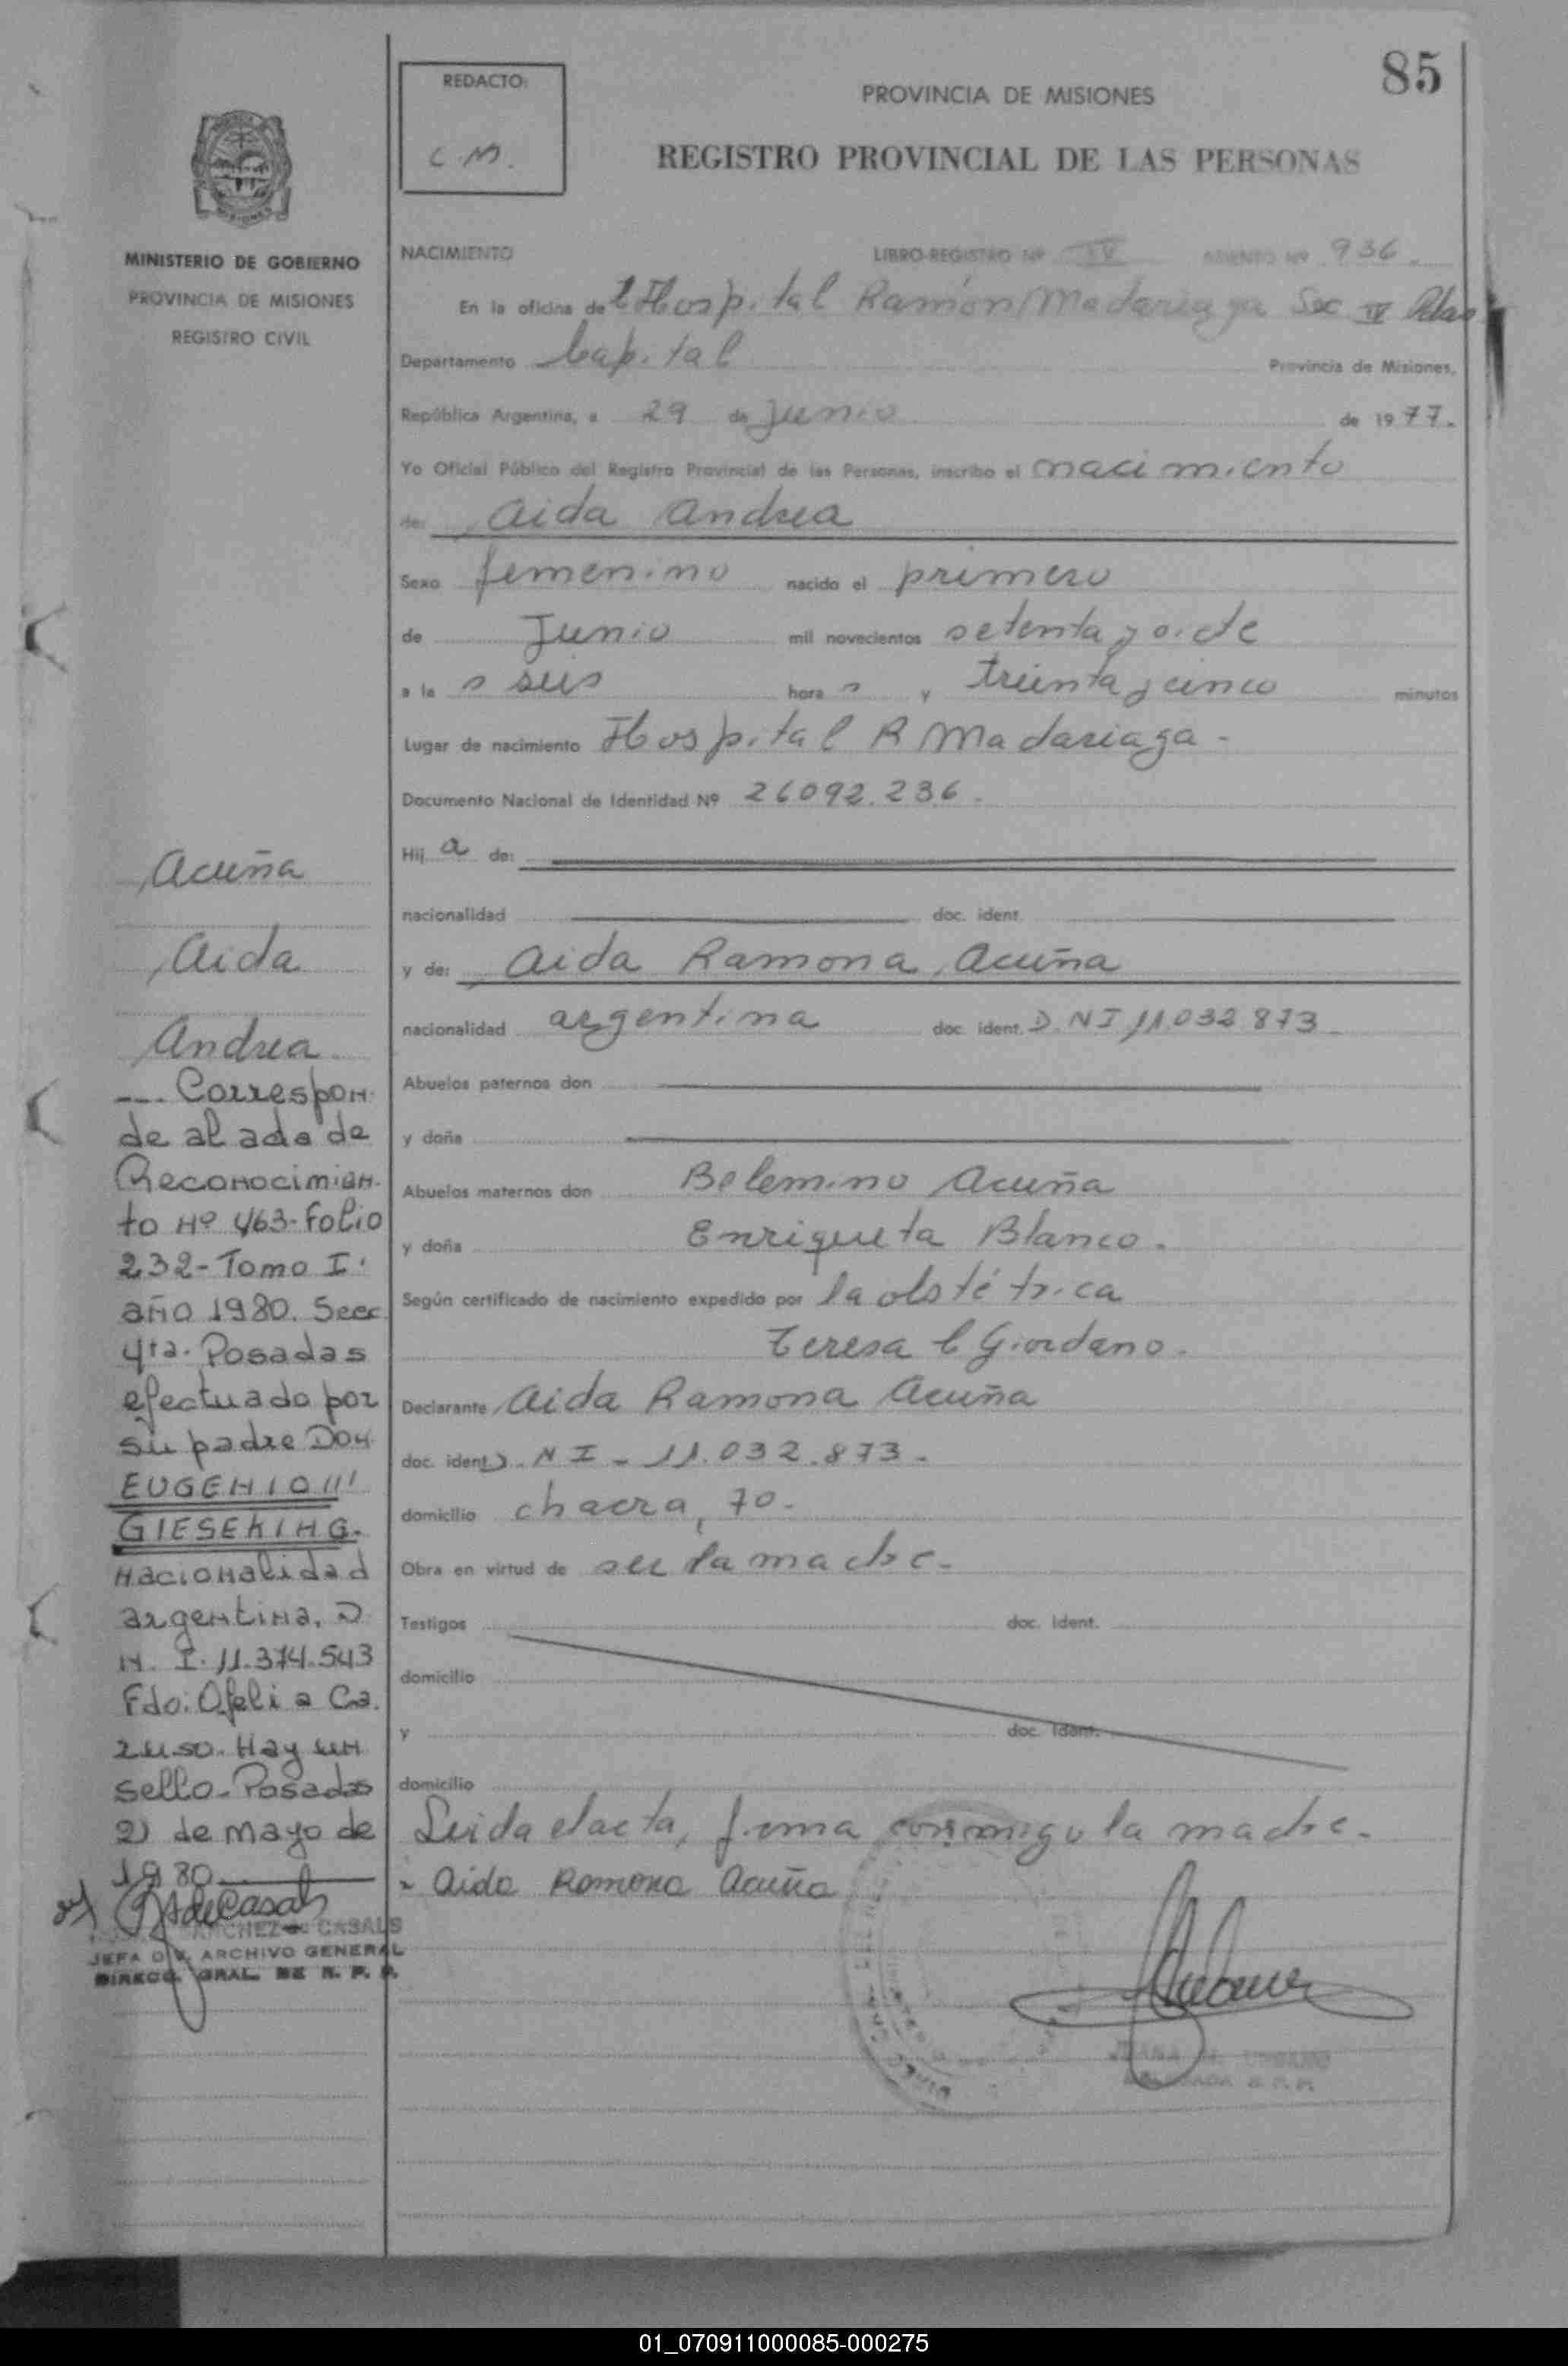 85
REDACTO:
C.M.
PROVINCIA DE MISIONES
REGISTRO PROVINCIAL DE LAS PERSONAS
MISIONES
MINISTERIO DE GOBIERNO
PROVINCIA DE MISIONES
REGISTRO CIVIL
NACIMIENTO LIBRO-REGISTRO Nº IV ASIENTO Nº 936.
En la oficina del Hospital Ramón Madariaga Sec IV Pdas
Departamento Capital Provincia de Misiones,
República Argentina, a 29 de Junio de 1977.
Yo Oficial Público del Registro Provincial de las Personas, inscribo el nacimiento
de: Aida Andrea
Sexo femenino nacido el primero
de Junio mil novecientos setenta y siete
a la s seis hora s y treinta y cinco minutos
Lugar de nacimiento Hospital R Madariaga -
Documento Nacional de Identidad Nº 26092.236.
Hij a de:
nacionalidad doc. ident.
y de: Aida Ramona Acuña
nacionalidad argentina doc. ident. D.N I 11.032 873
Abuelos paternos don
y doña
Abuelos maternos don Belemino Acuña
y doña Enriqueta Blanco.
Según certificado de nacimiento expedido por la obstétrica
Teresa C Giordano.
Declarante Aida Ramona Acuña
doc. ident D.N I - 11.032.873.
domicilio chacra, 70.
Obra en virtud de ser la madre.
Testigos doc. Ident.
domicilio
y doc. Ident.
domicilio
Leida el acta, firma conmigo la madre.
- Aida Ramona Acuña
Acuña
Aida
Andrea
--- Correspon-
de al acta de
Reconocimien-
to Nº 463-Folio
232-Tomo I.
año 1980. Secc
4ta. Posadas
efectuado por
su padre Don
EUGENIO
GIESEKING.
Nacionalidad
argentina, D.
N. I. 11.374.543
Fdo: Ofelia Ca-
ruso. Hay un
sello. Posadas
21 de mayo de
1980
CHEZ de CASALS
JEFA DIV. ARCHIVO GENERAL
DIRECC. GRAL. DE R. P. P.
01_070911000085-000275